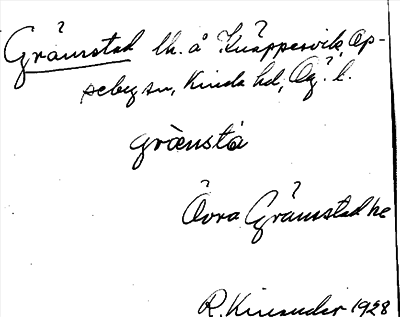 Grämstad lh. å Knäppesvik, Op-
peby sn, Kinda hd, Ög. l.
grænsta
Övra Grämstad he
R. Kinander 1928